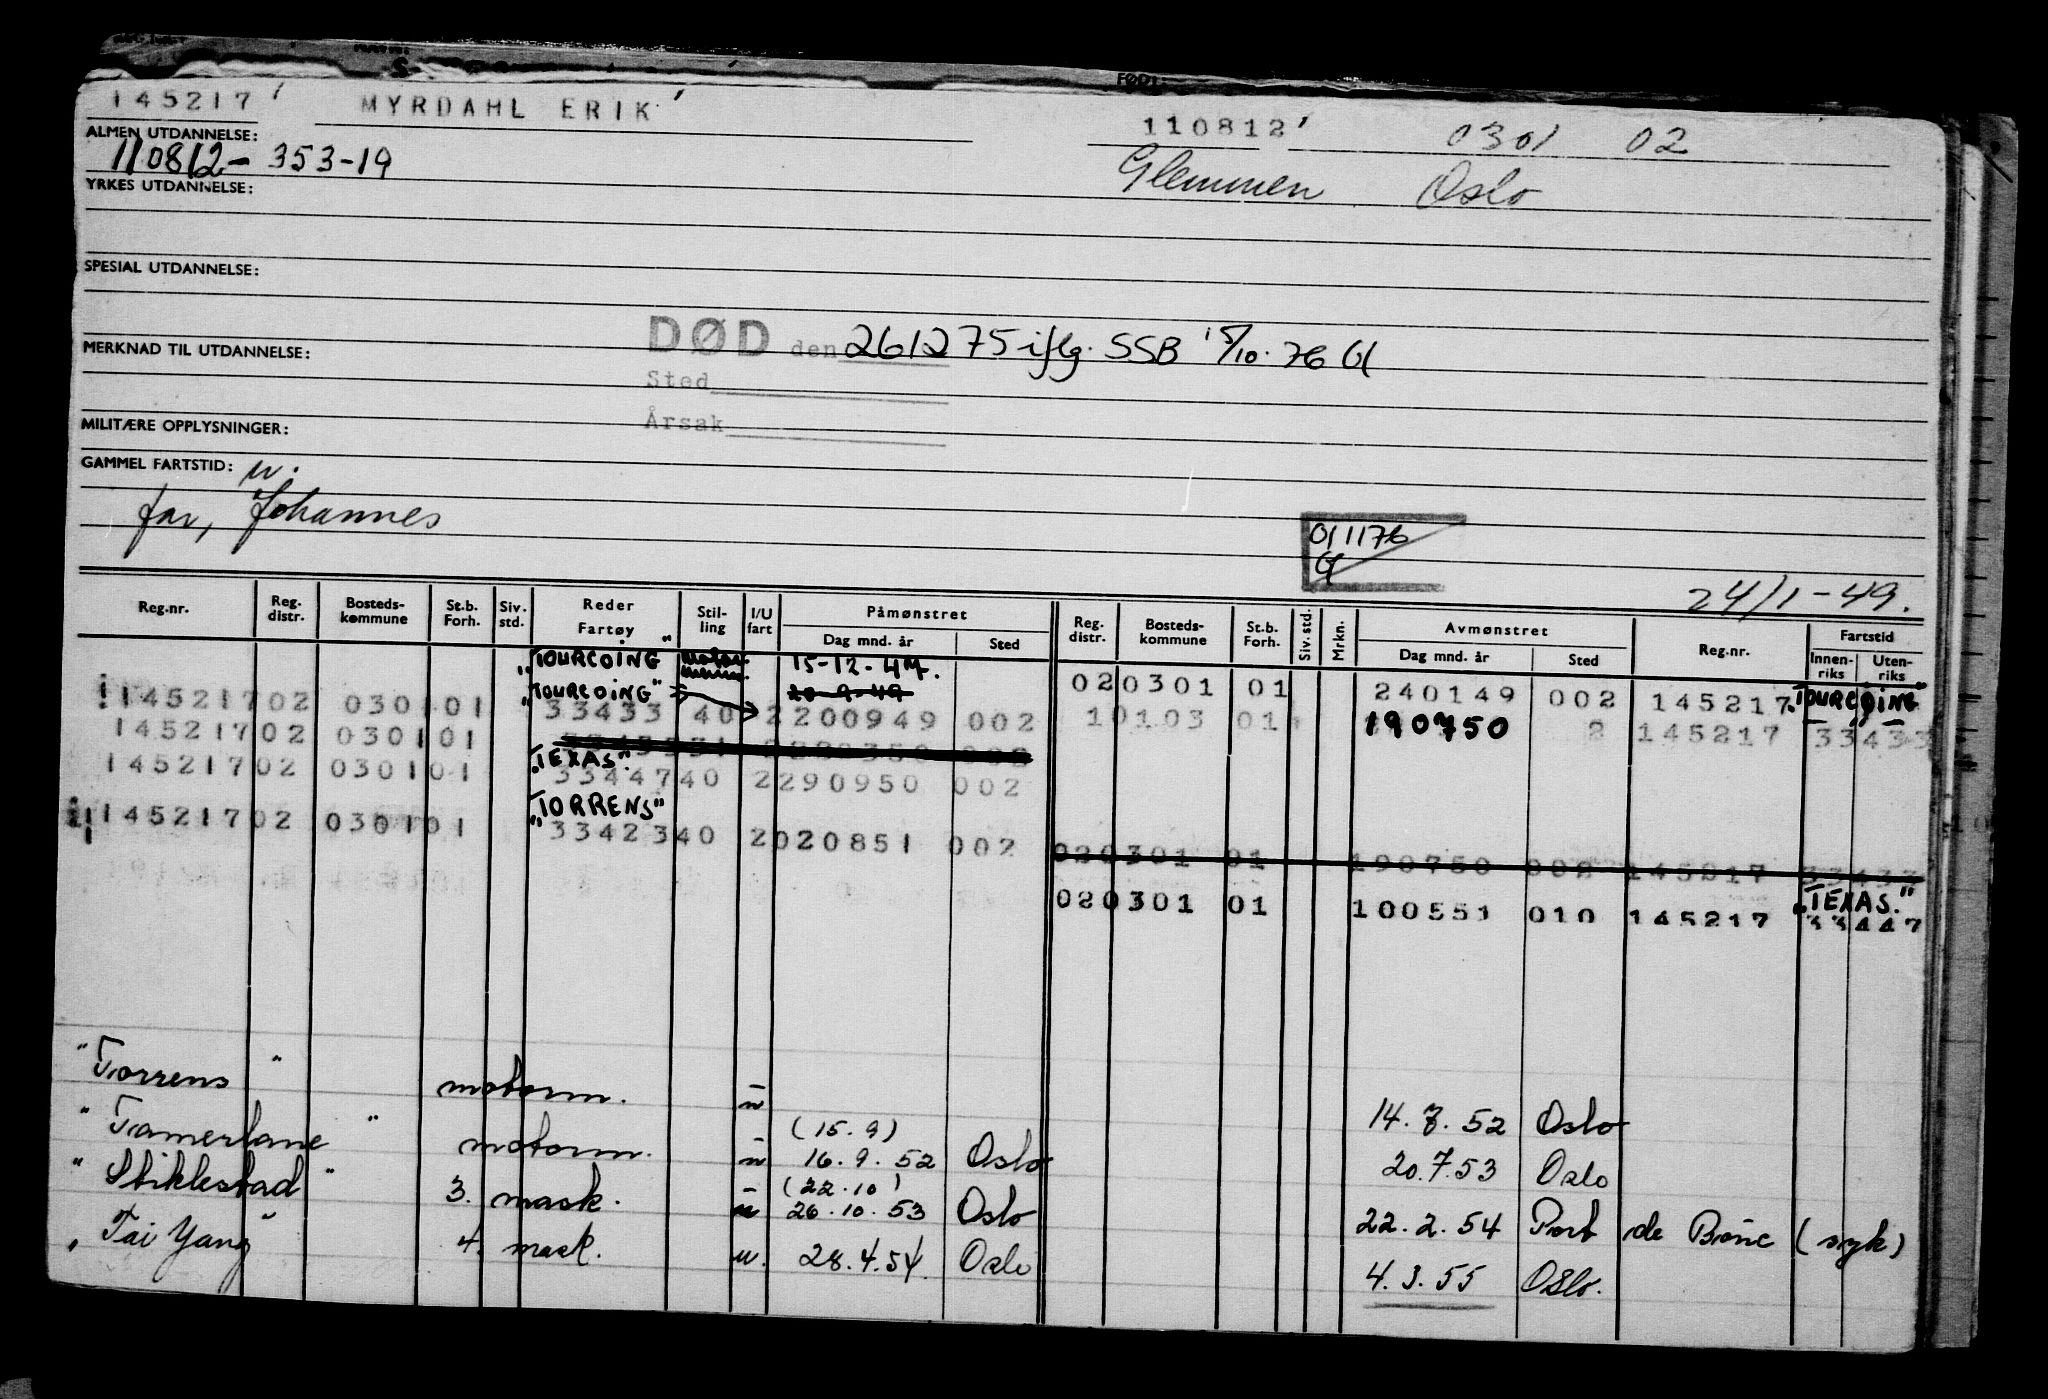 FØDT:
145217 MYRDAHL ERIK 110812 0301 02
ALMEN UTDANNELSE:
110812-353-19 Glemmen Oslo
YRKES UTDANNELSE:
SPESIAL UTDANNELSE:
DØD den 261275 iflg. SSB 15/10.76
MERKNAD TIL UTDANNELSE:
Sted
Årsak
MILITÆRE OPPLYSNINGER:
GAMMEL FARTSTID: u.
far, Johannes
011176
24/1-49.
Reg.nr. Reg. distr. Bosteds-kommune St.b. Forh. Siv. std. Reder Fartøy Stil-ling I/U fart Påmønstret Dag mnd. år Sted Reg. distr. Bosteds-kommune St.b. Forh. Siv. std. Mrkn. Avmønstret Dag mnd. år Sted Reg.nr. Fartstid Innen-riks Uten-riks
"TOURCOING" 15-12-47.
020301 01 240149 002 145217 "TOURCOING"
"TOURCOING" 20-9-49
145217 02 0301 01 33433 40 2 200949 002
10103 01 190750 2 145217 33433
145217 02 0301 01
"TEXAS"
145217 02 0301 01 33447 40 2 290950 002
"TORRENS"
145217 02 0301 01 33423 40 2 020851 002
020301 01 190750 002 145217 33433
020301 01 100551 010 145217 33447
"TEXAS."
"Torrens" motorm. u 14.7.52 Oslo
"Tamerlane" motorm. u (15.9) 16.9.52 Oslo 20.7.53 Oslo
"Stiklestad" 3. mask. u (22.10) 26.10.53 Oslo 22.2.54 Port de Bouc (syk)
"Tai Yang" 4. mask. u. 28.4.54. Oslo 4.3.55 Oslo.